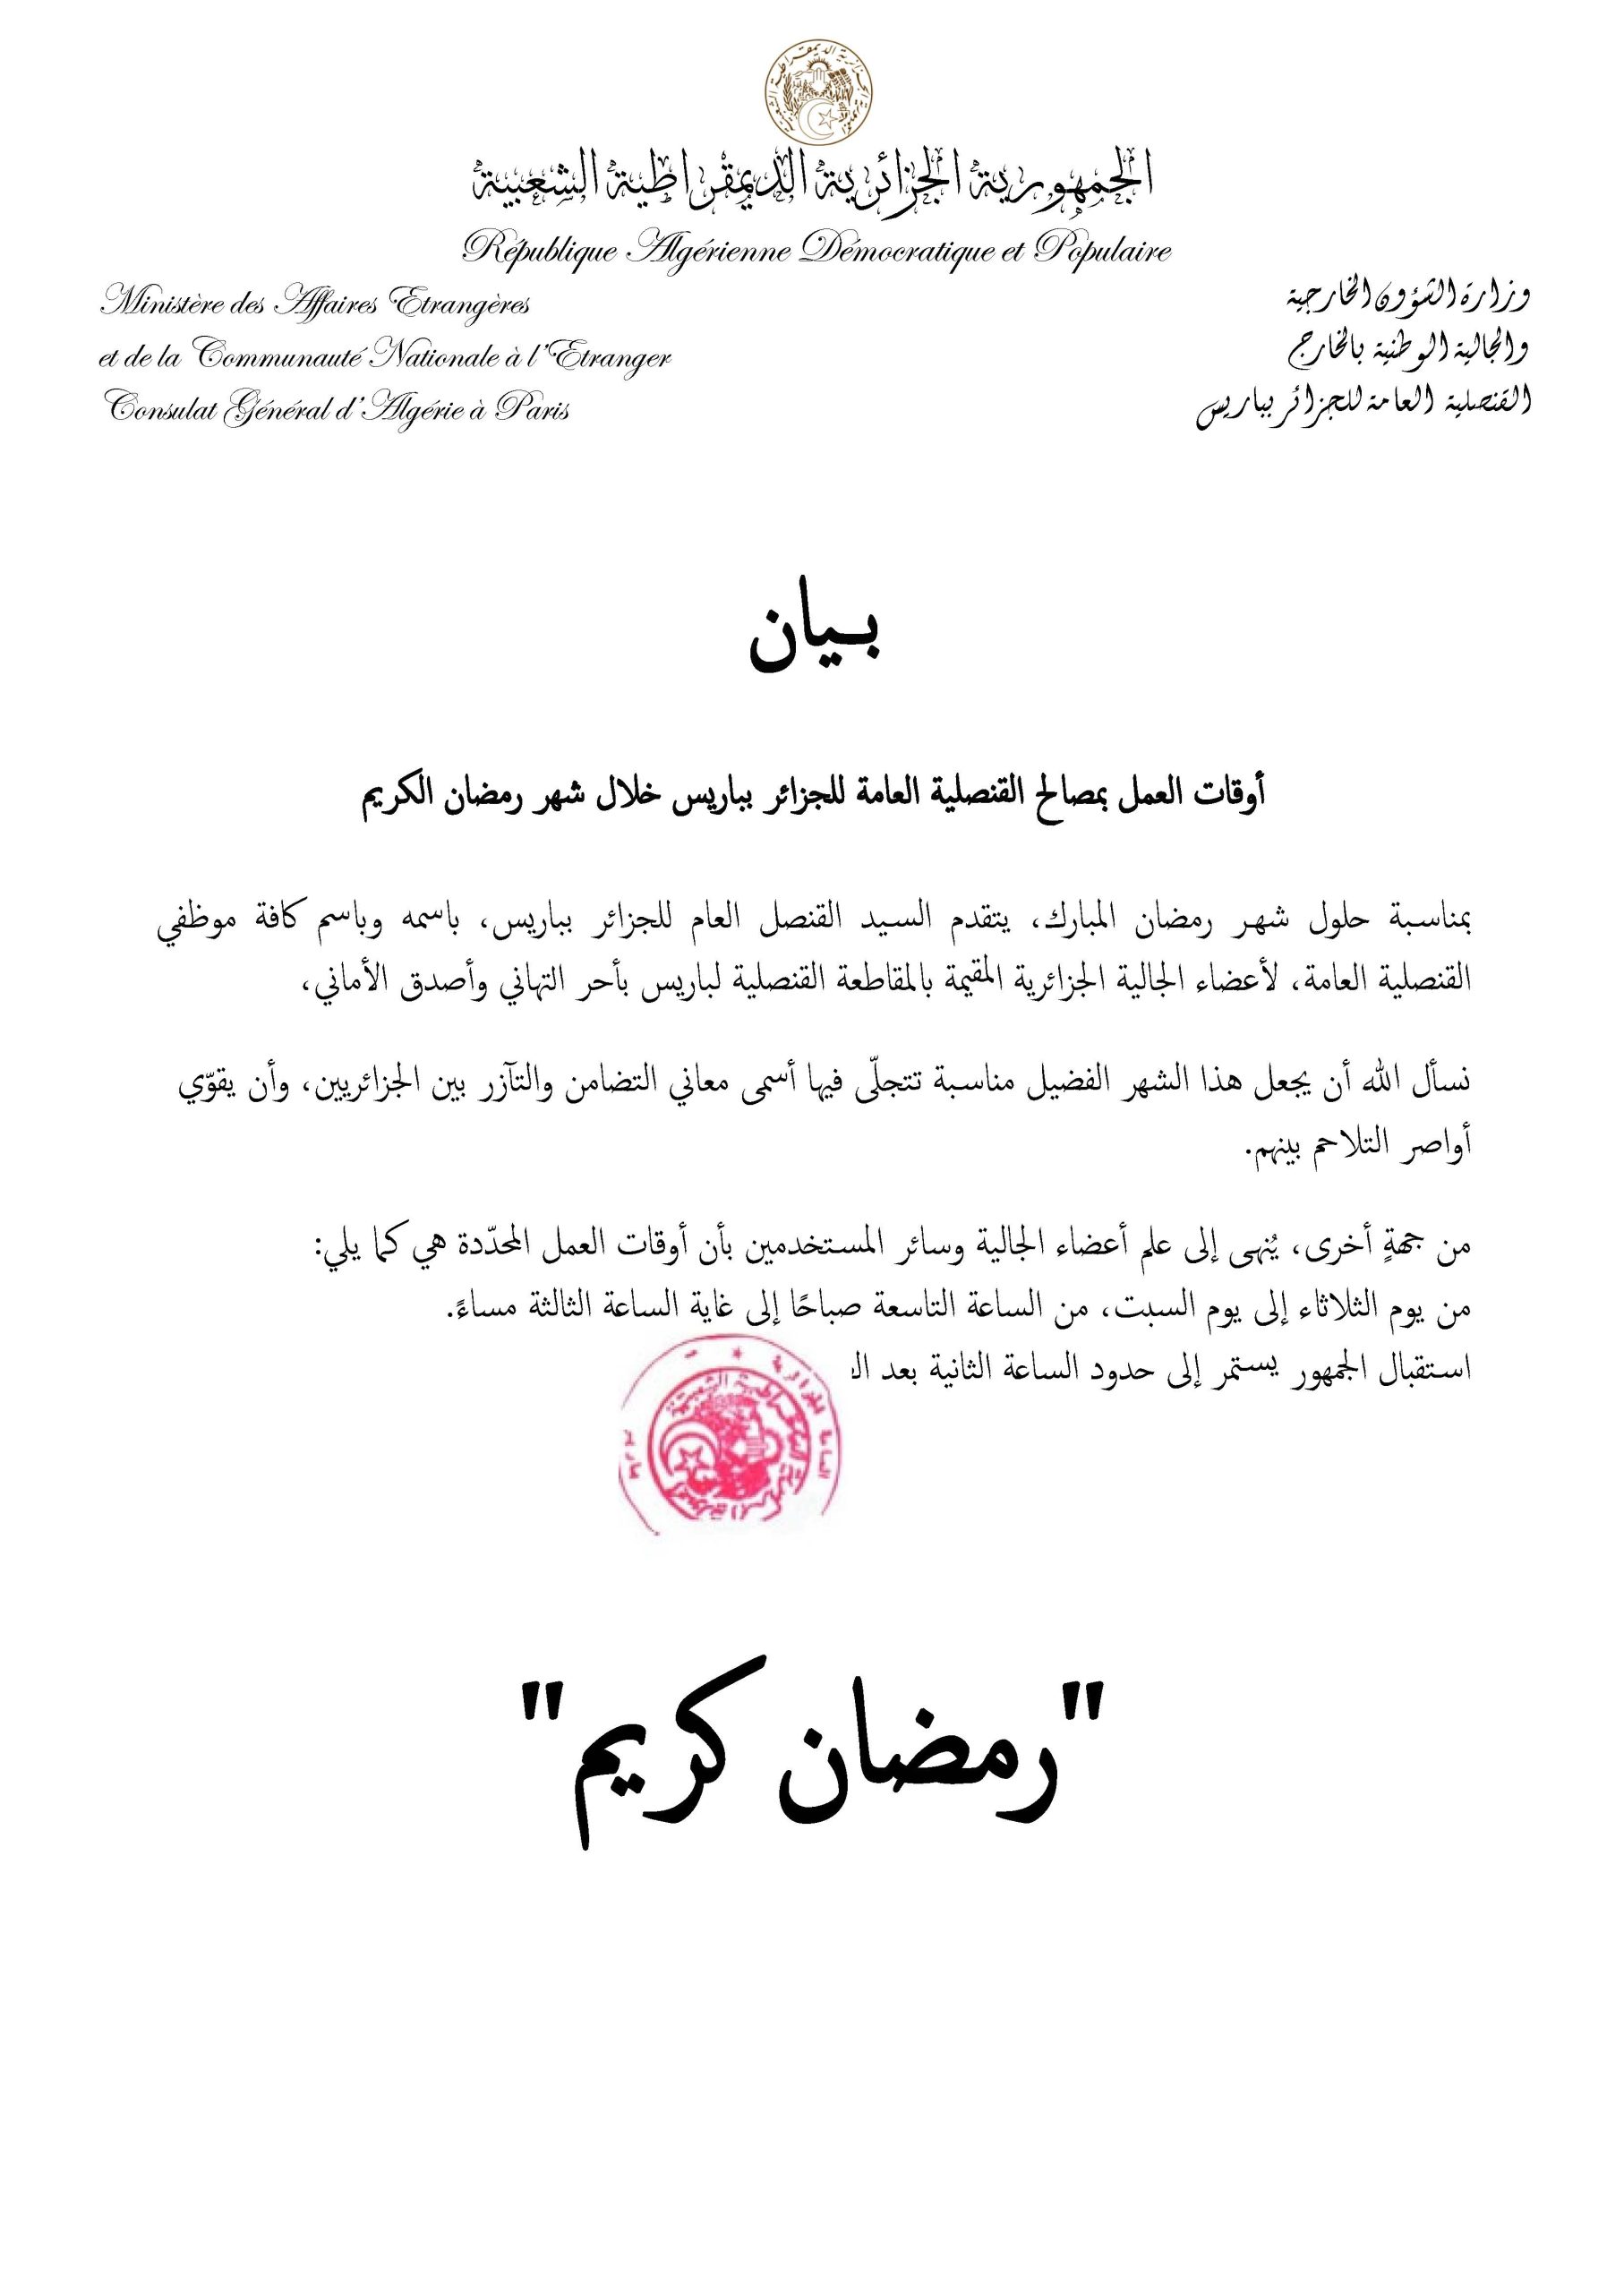 الجمهورية الجزائرية الديمقراطية الشعبية
République Algérienne Démocratique et Populaire
Ministère des Affaires Etrangères
et de la Communauté Nationale à l'Etranger
Consulat Général d'Algérie à Paris
وزارة الشؤون الخارجية
والجالية الوطنية بالخارج
القنصلية العامة للجزائر بباريس
بـيان
أوقات العمل بمصالح القنصلية العامة للجزائر بباريس خلال شهر رمضان الكريم
بمناسبة حلول شهر رمضان المبارك، يتقدم السيد القنصل العام للجزائر بباريس، باسمه وباسم كافة موظفي
القنصلية العامة، لأعضاء الجالية الجزائرية المقيمة بالمقاطعة القنصلية لباريس بأحر التهاني وأصدق الأماني،
نسأل الله أن يجعل هذا الشهر الفضيل مناسبة تتجلّى فيها أسمى معاني التضامن والتآزر بين الجزائريين، وأن يقوّي
أواصر التلاحم بينهم.
من جهةٍ أخرى، يُنهى إلى علم أعضاء الجالية وسائر المستخدمين بأن أوقات العمل المحدّدة هي كما يلي:
من يوم الثلاثاء إلى يوم السبت، من الساعة التاسعة صباحًا إلى غاية الساعة الثالثة مساءً.
استقبال الجمهور يستمر إلى حدود الساعة الثانية بعد
"رمضان كريم"